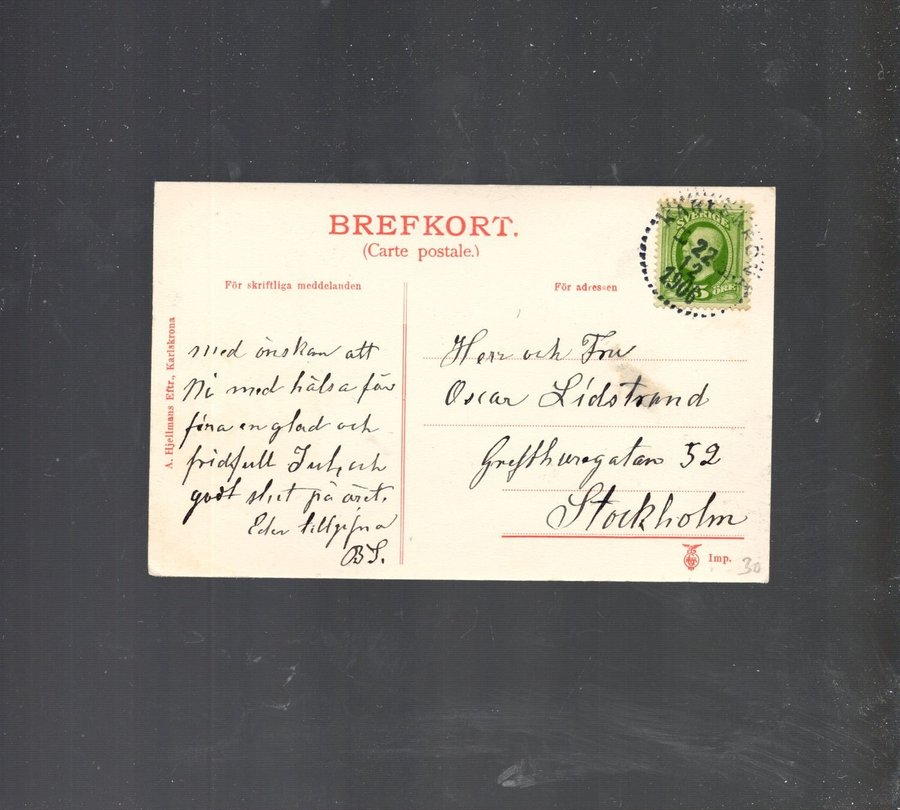 BREFKORT.
(Carte postale.)
För skriftliga meddelanden
För adressen
A. Hjellmans Eftr., Karlskrona
SVERIGE
5 ÖRE
KARLSKRONA
22
12
1906
med önskan att
Ni med hälsa får
fira en glad och
fridfull Jul, och
godt slut på året.
Eder tillgifna
BS.
Herr och Fru
Oscar Lidstrand
Grefthuregatan 52
Stockholm
Imp.
30